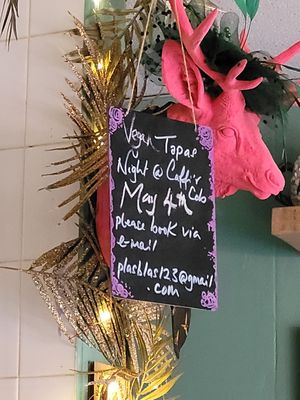 Vegan Tapas
Night @ Caffi'r
Cob
May 4th
please book via
e-mail
plasblas123@gmail
.com